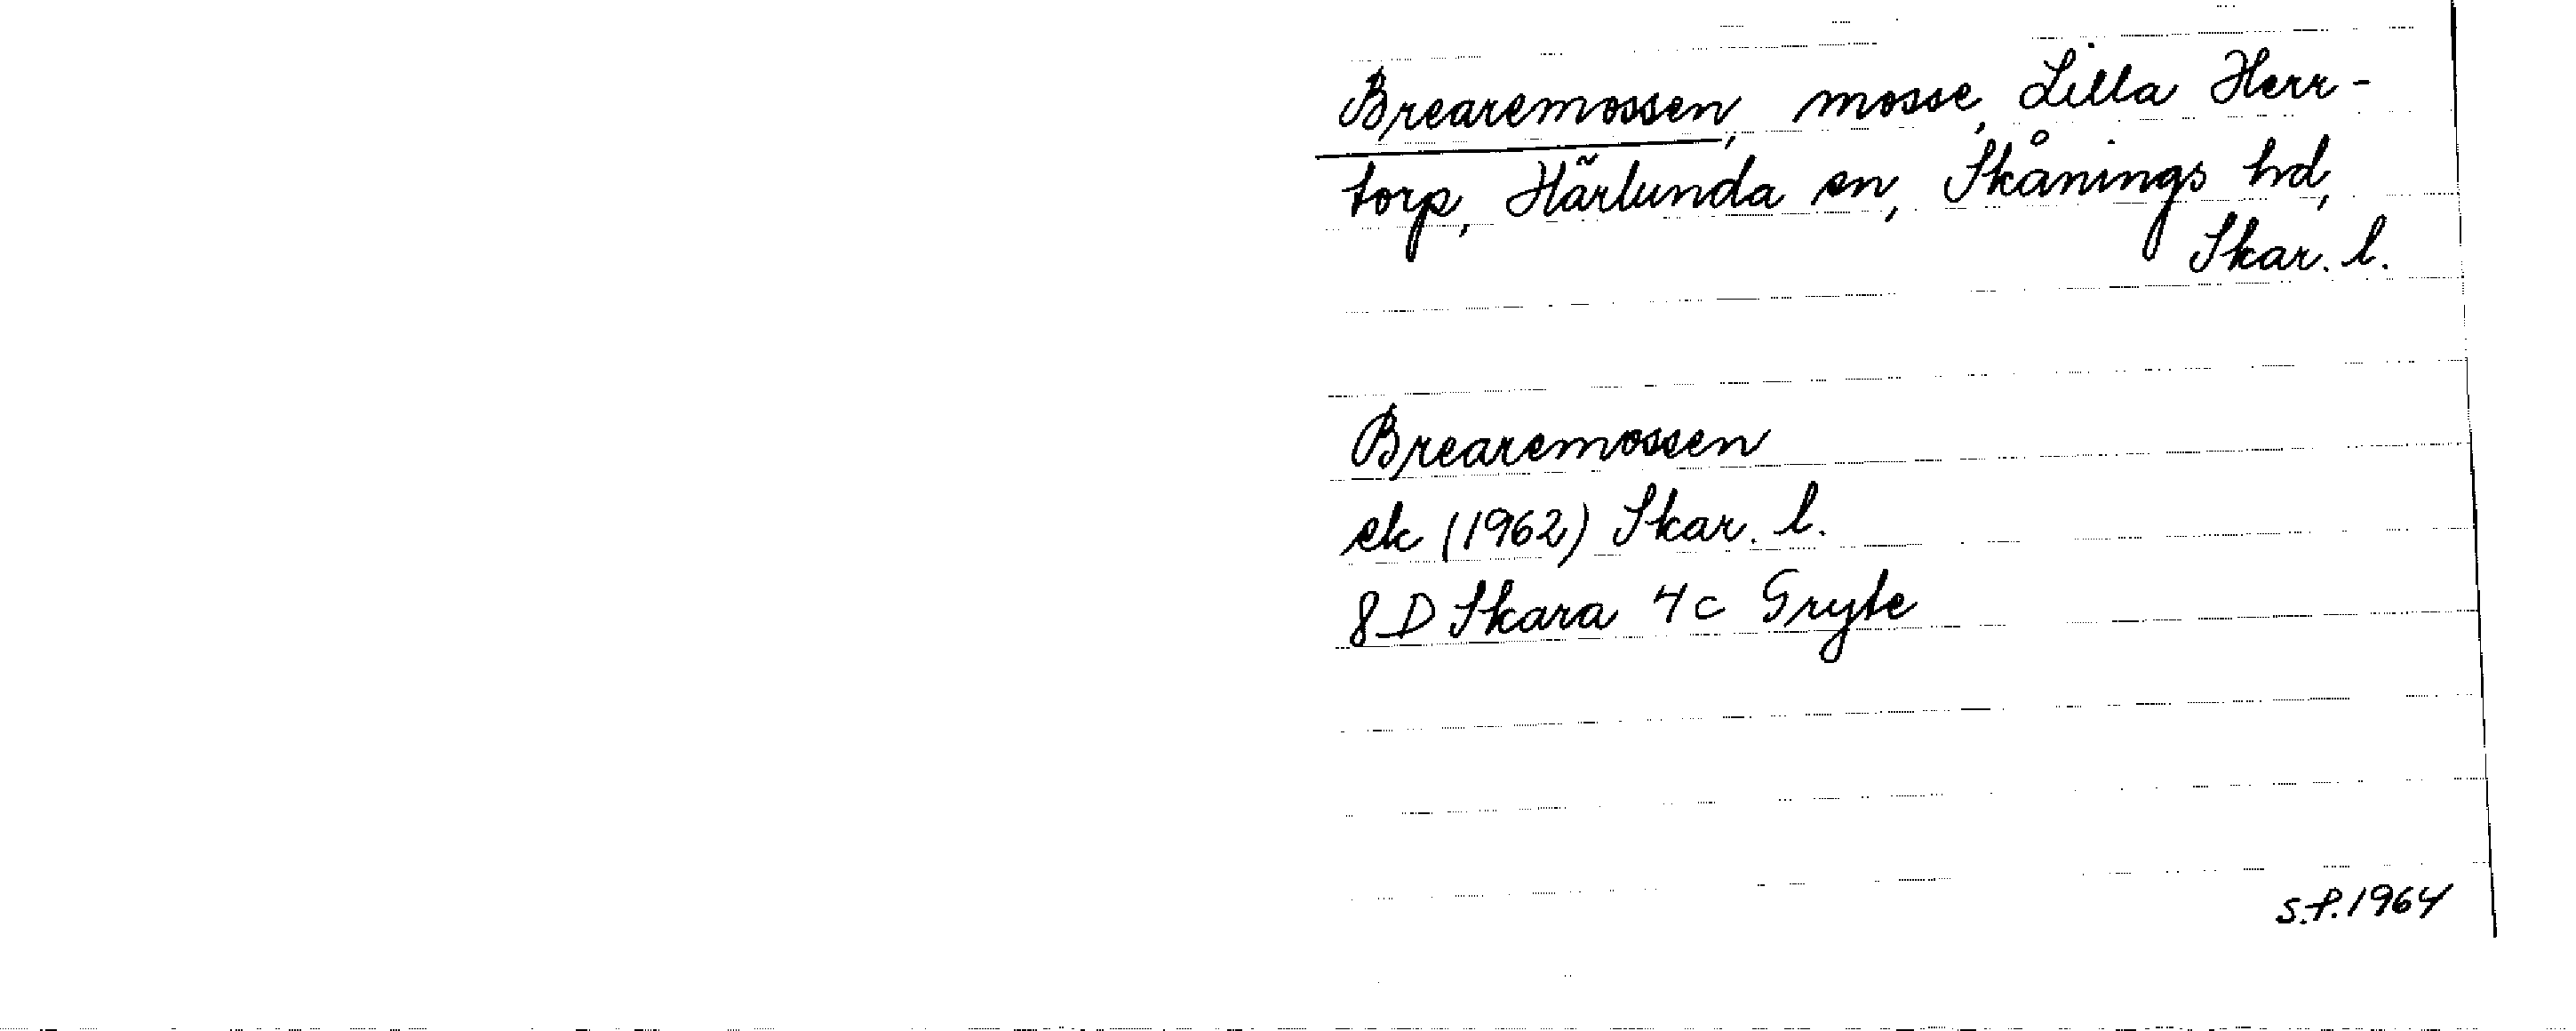 Brearemossen, mosse, Lilla Herr-
torp, Härlunda sn, Skånings hd,
Skar. l.
Brearemossen
ek (1962) Skar. l.
8D Skara 4c Gryte
S.P. 1964